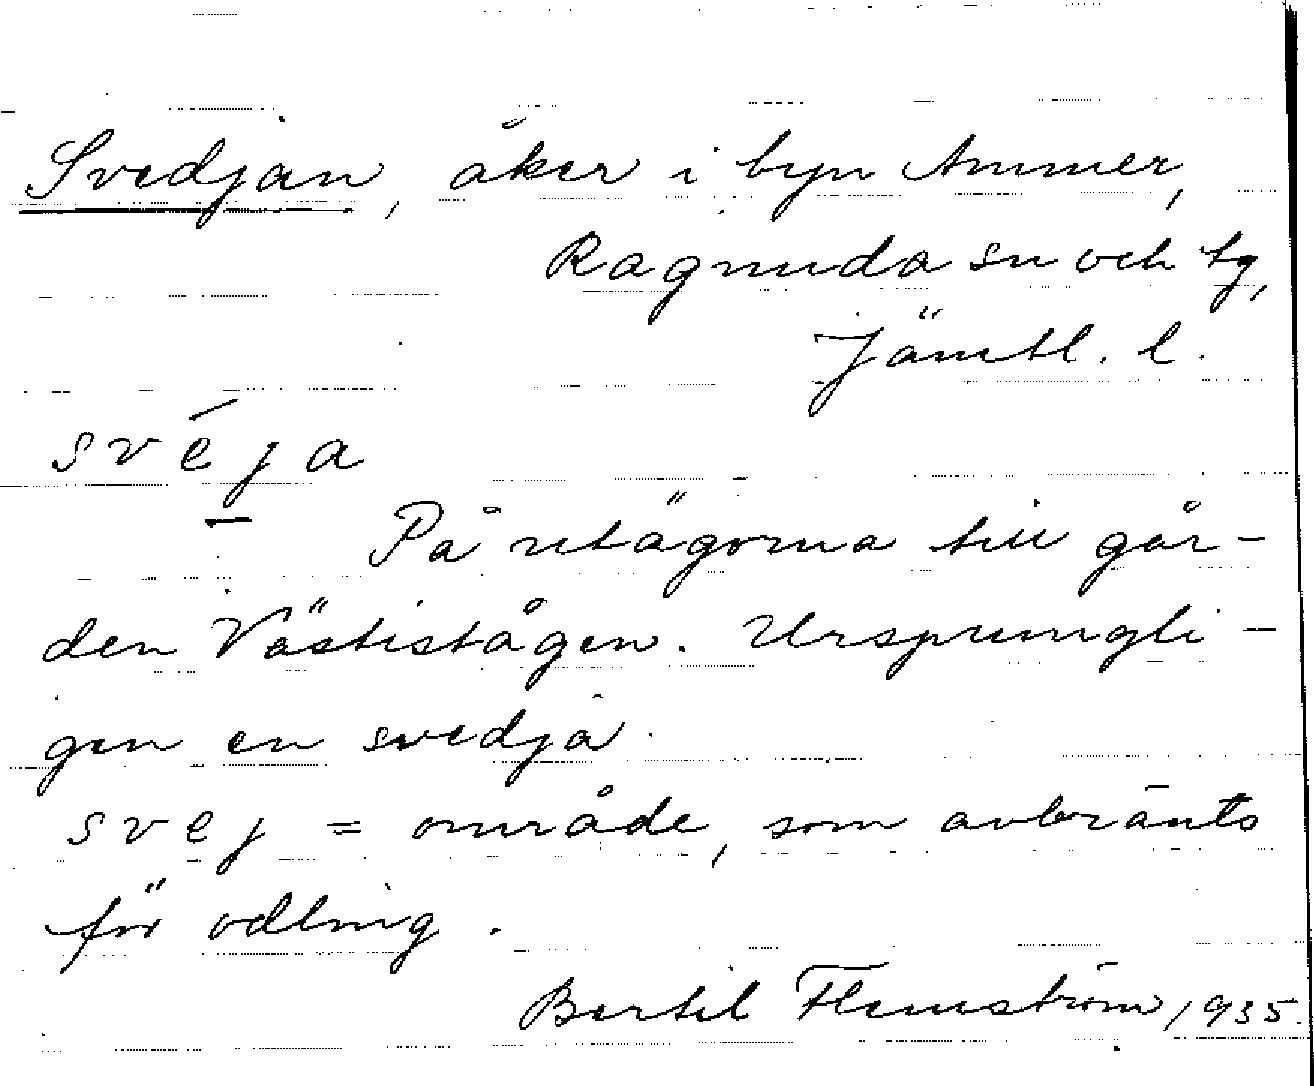 Svedjan, åker i byn Ammer,
Ragunda sn och tg,
Jämtl. l.
svéja
På utägorna till går-
den Västistågen. Ursprungli-
gen en svedja.
svej = område, som avbränts
för odling.
Bertil Flemström, 1935.